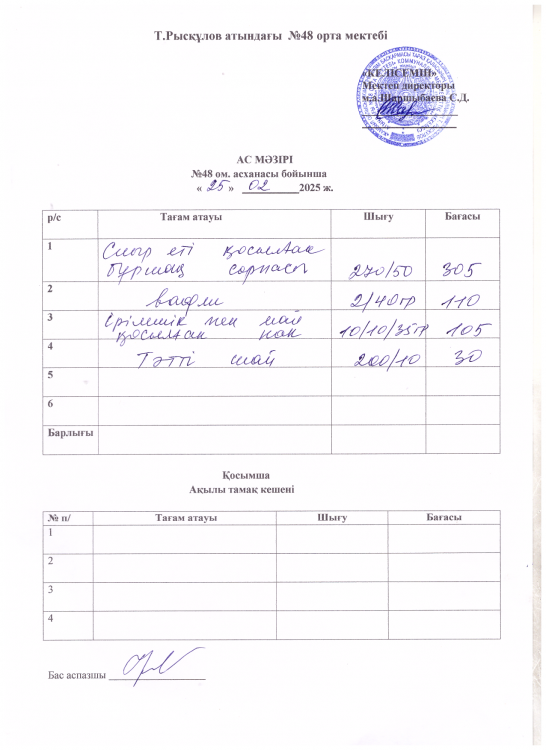 Т.Рысқұлов атындағы №48 орта мектебі
«КЕЛІСЕМІН»
Мектеп директоры
м.а.Шаршыбаева С.Д.
АС МӘЗІРІ
№48 ом. асханасы бойынша
« 25 » 02 2025 ж.
р/с Тағам атауы Шығу Бағасы
1 Сиыр еті қосылған
бұршақ сорпасы 270/50 305
2 вафли 2/40гр 110
3 Ірімшік пен май
қосылған нан 10/10/35гр 105
4 Тәтті шай 200/10 30
5
6
Барлығы
Қосымша
Ақылы тамақ кешені
№ п/ Тағам атауы Шығу Бағасы
1
2
3
4
Бас аспазшы